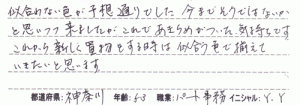 似合わない色が予想通りでした。今までそうではないか
と思いつつ来ましたが、これであきらめがついた気持ちです
これから新しく買物をする時は似合う色で揃えて
いきたいと思います
都道府県: 神奈川 年齢: 53 職業: パート事務 イニシャル: Y.Y